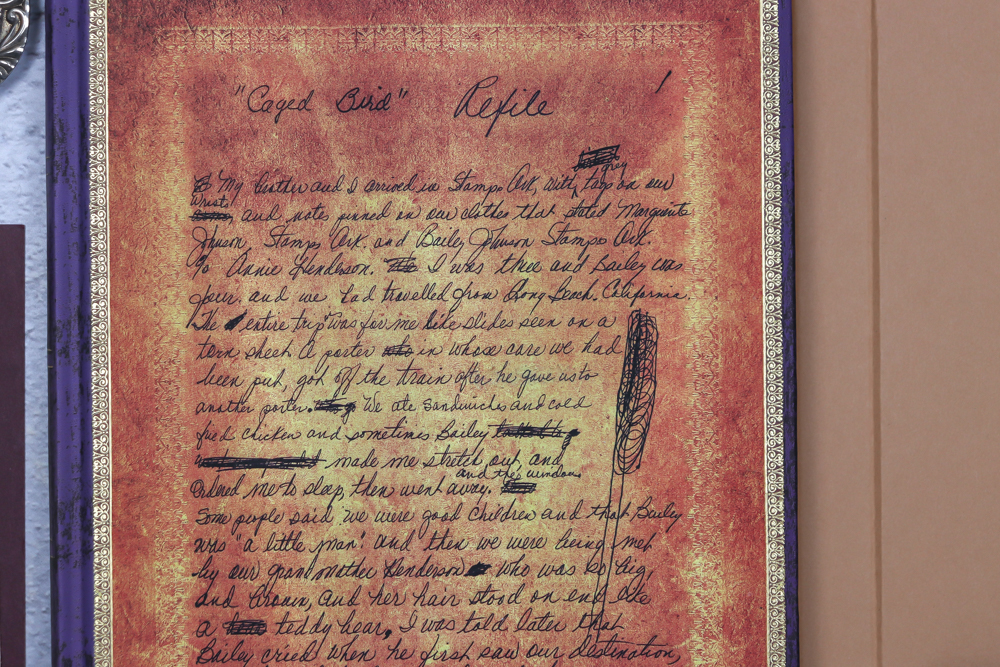 "Caged Bird" Refile 1
grey
My brother and I arrived in Stamps Ark, with tags on our
wrists
and notes pinned on our clothes that stated Marguerite
Johnson, Stamps Ark. and Bailey Johnson Stamps Ark.
c/o Annie Henderson. I was three and Bailey was
four, and we had travelled from Long Beach. California.
The entire trip was for me like slides seen on a
torn sheet. A porter in whose care we had
been put, got off the train after he gave us to
another porter. We ate sandwiches and cold
fried chicken and sometimes Bailey
made me stretch out, and
and the windows
ordered me to sleep, then went away.
Some people said we were good children and that Bailey
was "a little man" and then we were being met
by our grandmother Henderson who was so big,
and brown, and her hair stood on end like
a teddy bear, I was told later that
Bailey cried when he first saw our destination,